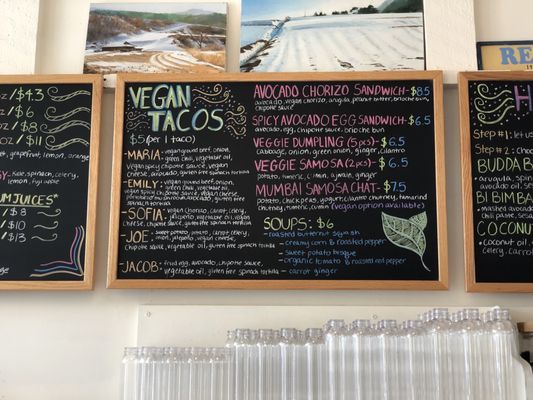 oz / $4.3
oz / $6
oz / $8
oz / $11
grapefruit, lemon, orange
kale, spinach, celery,
lemon, fuji apple
JUICES"
/ $8
/ $10
/ $13
VEGAN
TACOS
$5 (per 1 taco)
MARIA: -vegan ground beef, onion,
green chili, vegetable oil,
vegan spicy chipotle sauce, vegan
cheese, avocado, gluten free spinach tortilla
EMILY: -vegan ground beef, onion,
green chili, vegetable oil,
vegan spicy chipotle sauce, vegan cheese,
avocado, gluten free spinach
tortilla
-SOFIA: Vegan Chorizo, carrot, celery,
jalapeño, vegetable oil, vegan
cheese, chipotle sauce, gluten free spinach tortilla
JOE: sweet potato, potato, carrot, celery,
onion, jalapeno, vegan cheese,
chipotle, avocado, vegetable oil, gluten free spinach tortilla
JACOB: fried egg, avocado, chipotle sauce,
vegetable oil, gluten free spinach tortilla
AVOCADO CHORIZO SANDWICH-$8.5
avocado, vegan chorizo, arugula, peanut butter, brioche bun,
chipotle sauce
SPICY AVOCADO EGG SANDWICH-$6.5
avocado, egg, chipotle sauce, brioche bun
VEGGIE DUMPLING (5 pcs)-$6.5
cabbage, onion, green onion, ginger, cilantro
VEGGIE SAMOSA (2 pcs)-$6.5
potato, turmeric, cumin, ajwain, ginger
MUMBAI SAMOSA CHAT-$7.5
potato, chick peas, yogurt, onion, cilantro chutney, tamarind
chutney, turmeric, cumin (vegan option available)
SOUPS: $6
-roasted butternut squash
- creamy corn & roasted pepper
- sweet potato bisque
- organic tomato & roasted red pepper
- carrot ginger
RE
Step #1: let us
Step #2: Choo
BUDDA B
arugula, spin
avocado oil, se
BI BIMBA
chili paste, ses
COCONUT
coconut oil, on
celery, carrot